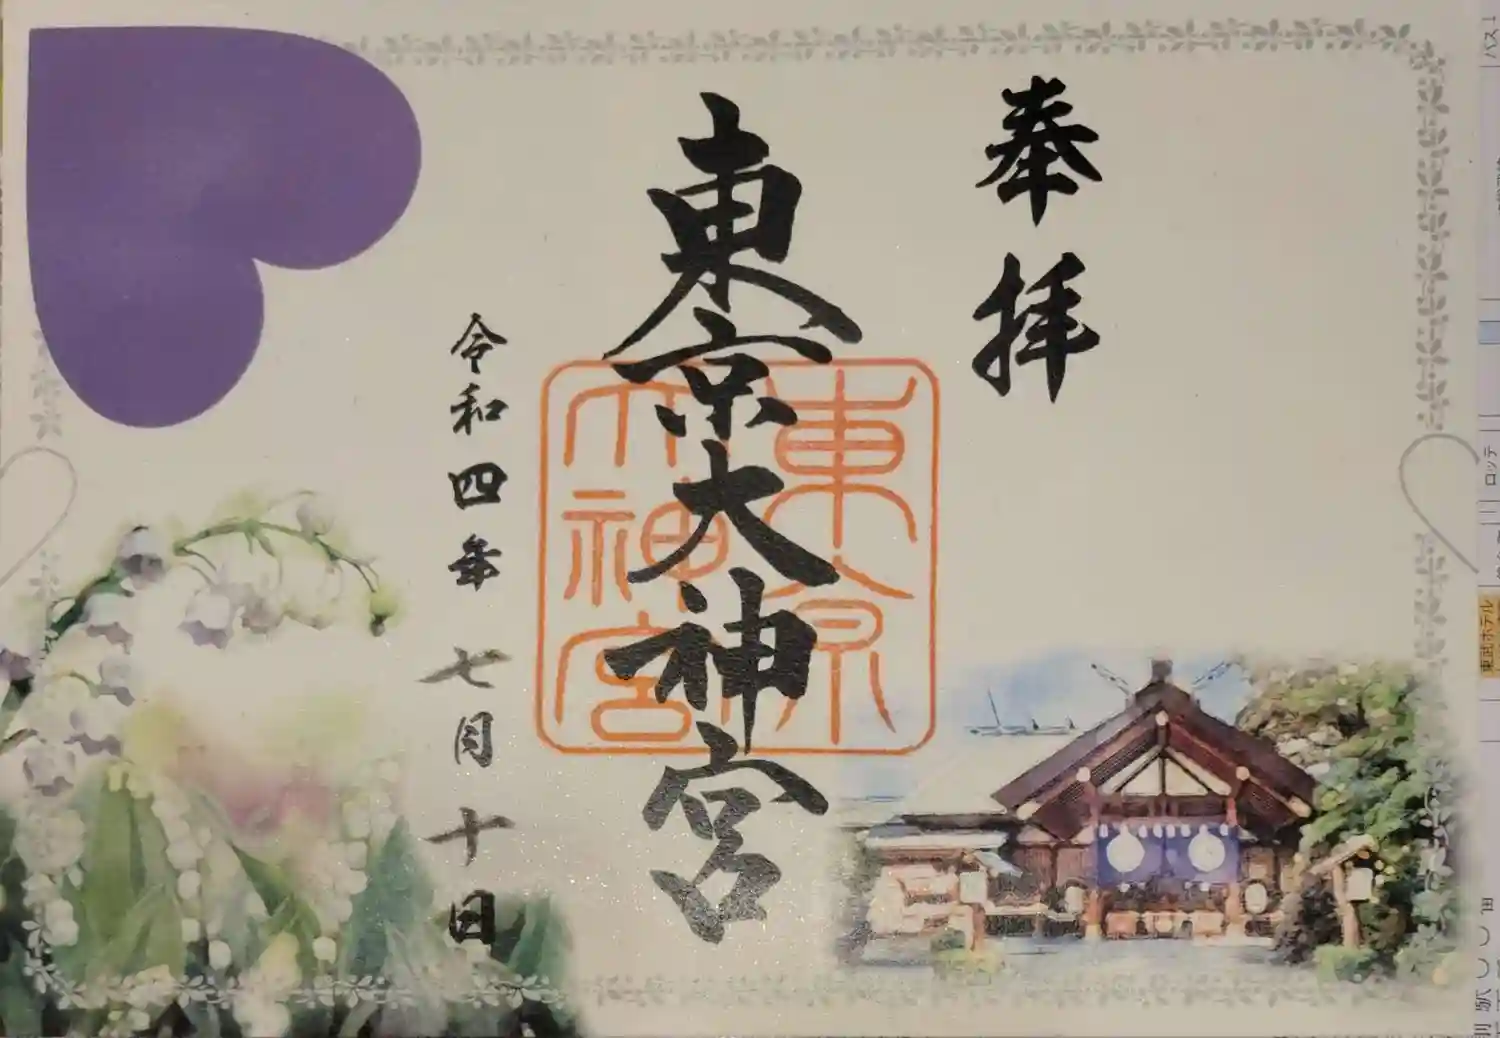 奉拝
東京大神宮
東京大神宮
令和四年七月十日
バス1
ロッテ
東武ホテル